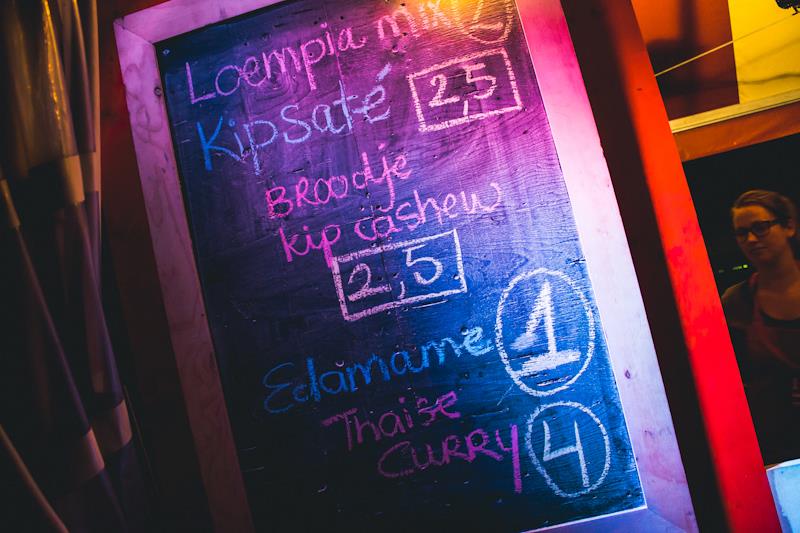 Loempia mix 2
Kipsaté 2,5
Broodje
kip cashew
2,5
Edamame 1
Thaise
Curry 4